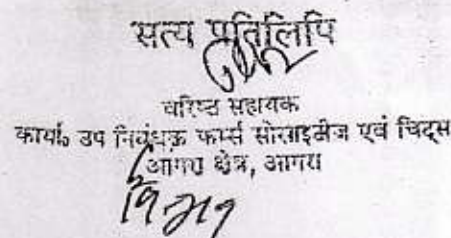 सत्य प्रतिलिपि
वरिष्ठ सहायक
कार्या० उप निबंधक फर्म्स सोसाइटीज एवं चिट्स
आगरा क्षेत्र, आगरा